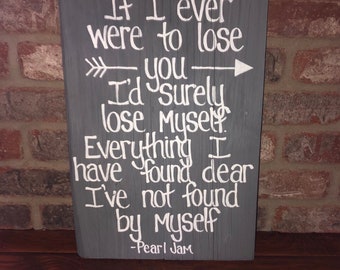 If I ever
were to lose
you
I'd surely
lose Myself.
Everything I
have found dear
I've not found
by Myself
-Pearl Jam